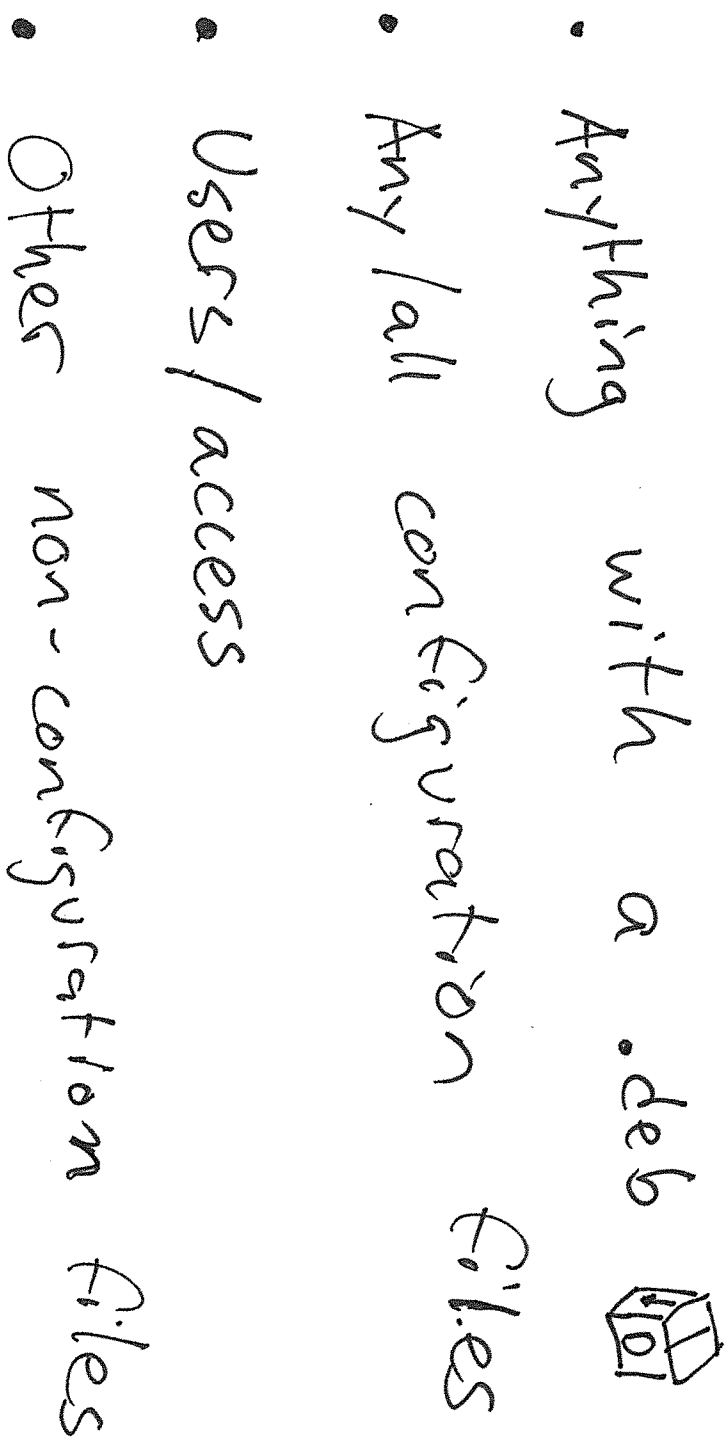 • Anything with a .deb
• Any/all configuration files
• Users/access
• Other non-configuration files